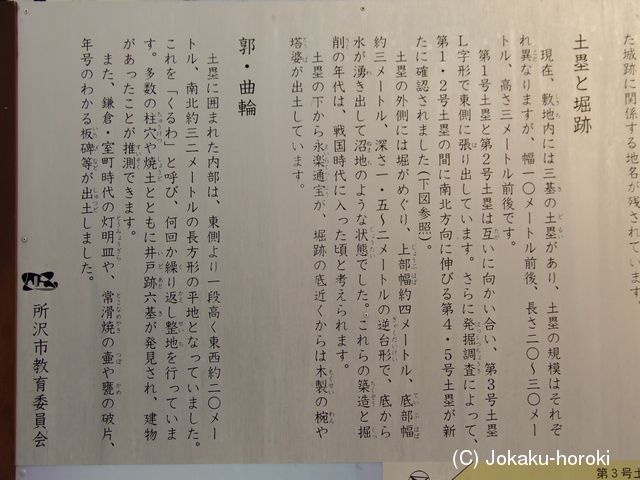 た城跡に関係する地名が残されています。
土塁と堀跡
現在、敷地内には三基の土塁があり、土塁の規模はそれぞ
れ異なりますが、幅一〇メートル前後、長さ二〇〜三〇メー
トル、高さ三メートル前後です。
第１号土塁と第２号土塁は互いに向かい合い、第３号土塁
Ｌ字形で東側に張り出しています。さらに発掘調査によって、
第１・２号土塁の間に南北方向に伸びる第４・５号土塁が新
たに確認されました(下図参照)。
土塁の外側には堀がめぐり、上部幅約四メートル、底部幅
約三メートル、深さ一・五〜二メートルの逆台形で、底から
水が湧き出して沼地のような状態でした。これらの築造と掘
削の年代は、戦国時代に入った頃と考えられます。
土塁の下から永楽通宝が、堀跡の底近くからは木製の椀や
塔婆が出土しています。
郭・曲輪
土塁に囲まれた内部は、東側より一段高く東西約二〇メー
トル、南北約三二メートルの長方形の平地となっていました。
これを「くるわ」と呼び、何回か繰り返し整地を行っていま
す。多数の柱穴や焼土とともに井戸跡六基が発見され、建物
があったことが推測できます。
また、鎌倉・室町時代の灯明皿や、常滑焼の壷や甕の破片、
年号のわかる板碑等が出土しました。
所沢市教育委員会
第３号土
(C) Jokaku-horoki